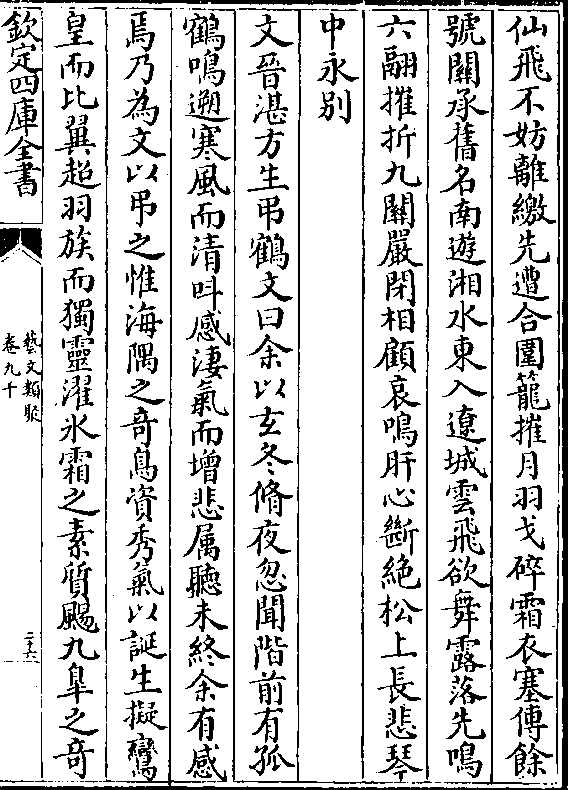 仙飛不妨離繳先遭合圍籠摧月羽弋碎霜衣塞傳餘
號關承舊名南遊湘水東入遼城雲飛欲舞露落先鳴
六翮摧折九關嚴閉相顧哀鳴肝心斷絶松上長悲琴
中永别
文晉湛方生弔鶴文曰余以玄冬脩夜忽聞階前有孤
鶴鳴遡寒風而清呌感淒氣而增悲属聽未終余有感
焉乃為文以弔之惟海隅之奇鳥資秀氣以誕生擬鸞
皇而比翼超羽族而獨靈濯氷霜之素質颺九臯之奇
欽定四庫全書
藝文類聚
卷九十
二十六